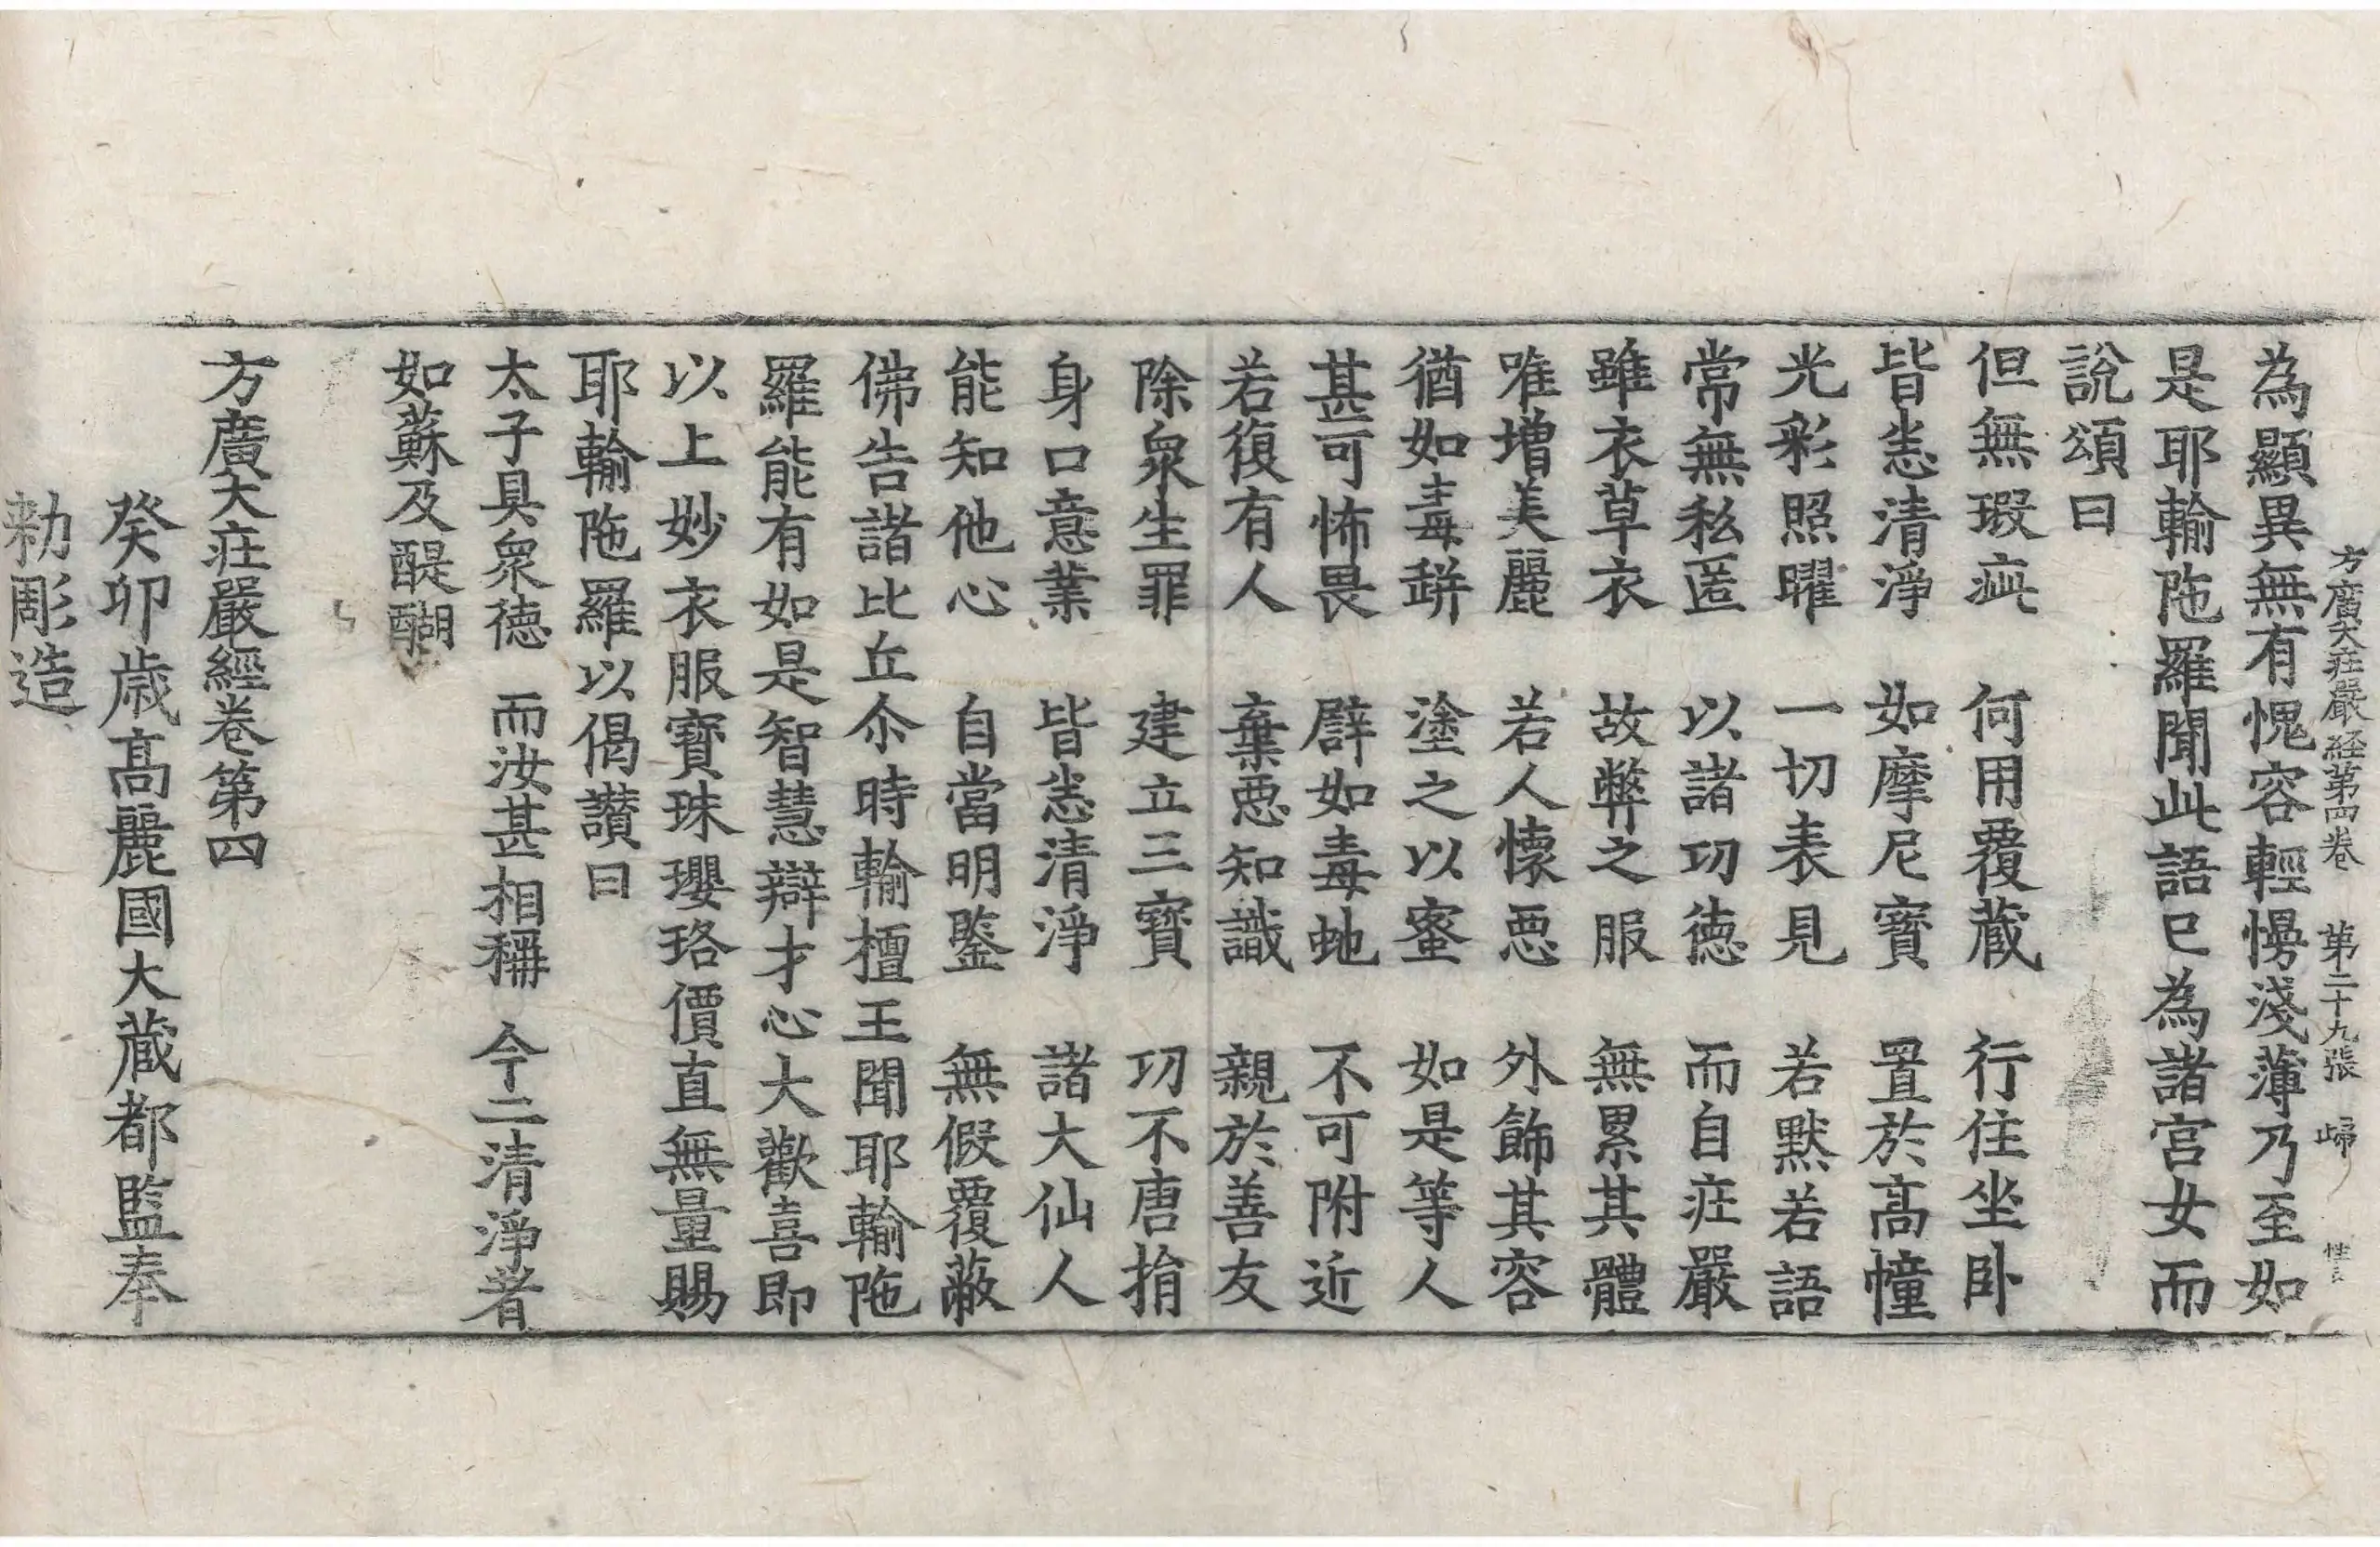 方廣大莊嚴経第四卷 第二十九張 歸
為顯異無有愧容輕慢淺薄乃至如
是耶輸陁羅聞此語已為諸宮女而
說頌曰
但無瑕疵 何用覆蔵 行住坐卧
皆悉清淨 如摩尼寶 置於髙幢
光彩照曜 一切表見 若默若語
常無私匿 以諸功徳 而自莊嚴
雖衣草衣 故弊之服 無累其體
唯增美麗 若人懷惡 外飾其容
猶如毒缾 塗之以蜜 如是等人
甚可怖畏 譬如毒虵 不可附近
若復有人 棄惡知識 親於善友
除衆生罪 建立三寶 功不唐捐
身口意業 皆悉清淨 諸大仙人
能知他心 自當明鑒 無假覆蔽
佛告諸比丘尒時輸檀王聞耶輸陁
羅能有如是智慧辯才心大歡喜即
以上妙衣服寶珠瓔珞價直無量賜
耶輸陁羅以偈讃曰
太子具衆徳 而汝甚相稱 今二清淨者
如蘇及醍醐
方廣大莊嚴經卷第四
癸卯歲髙麗國大蔵都監奉
勑彫造